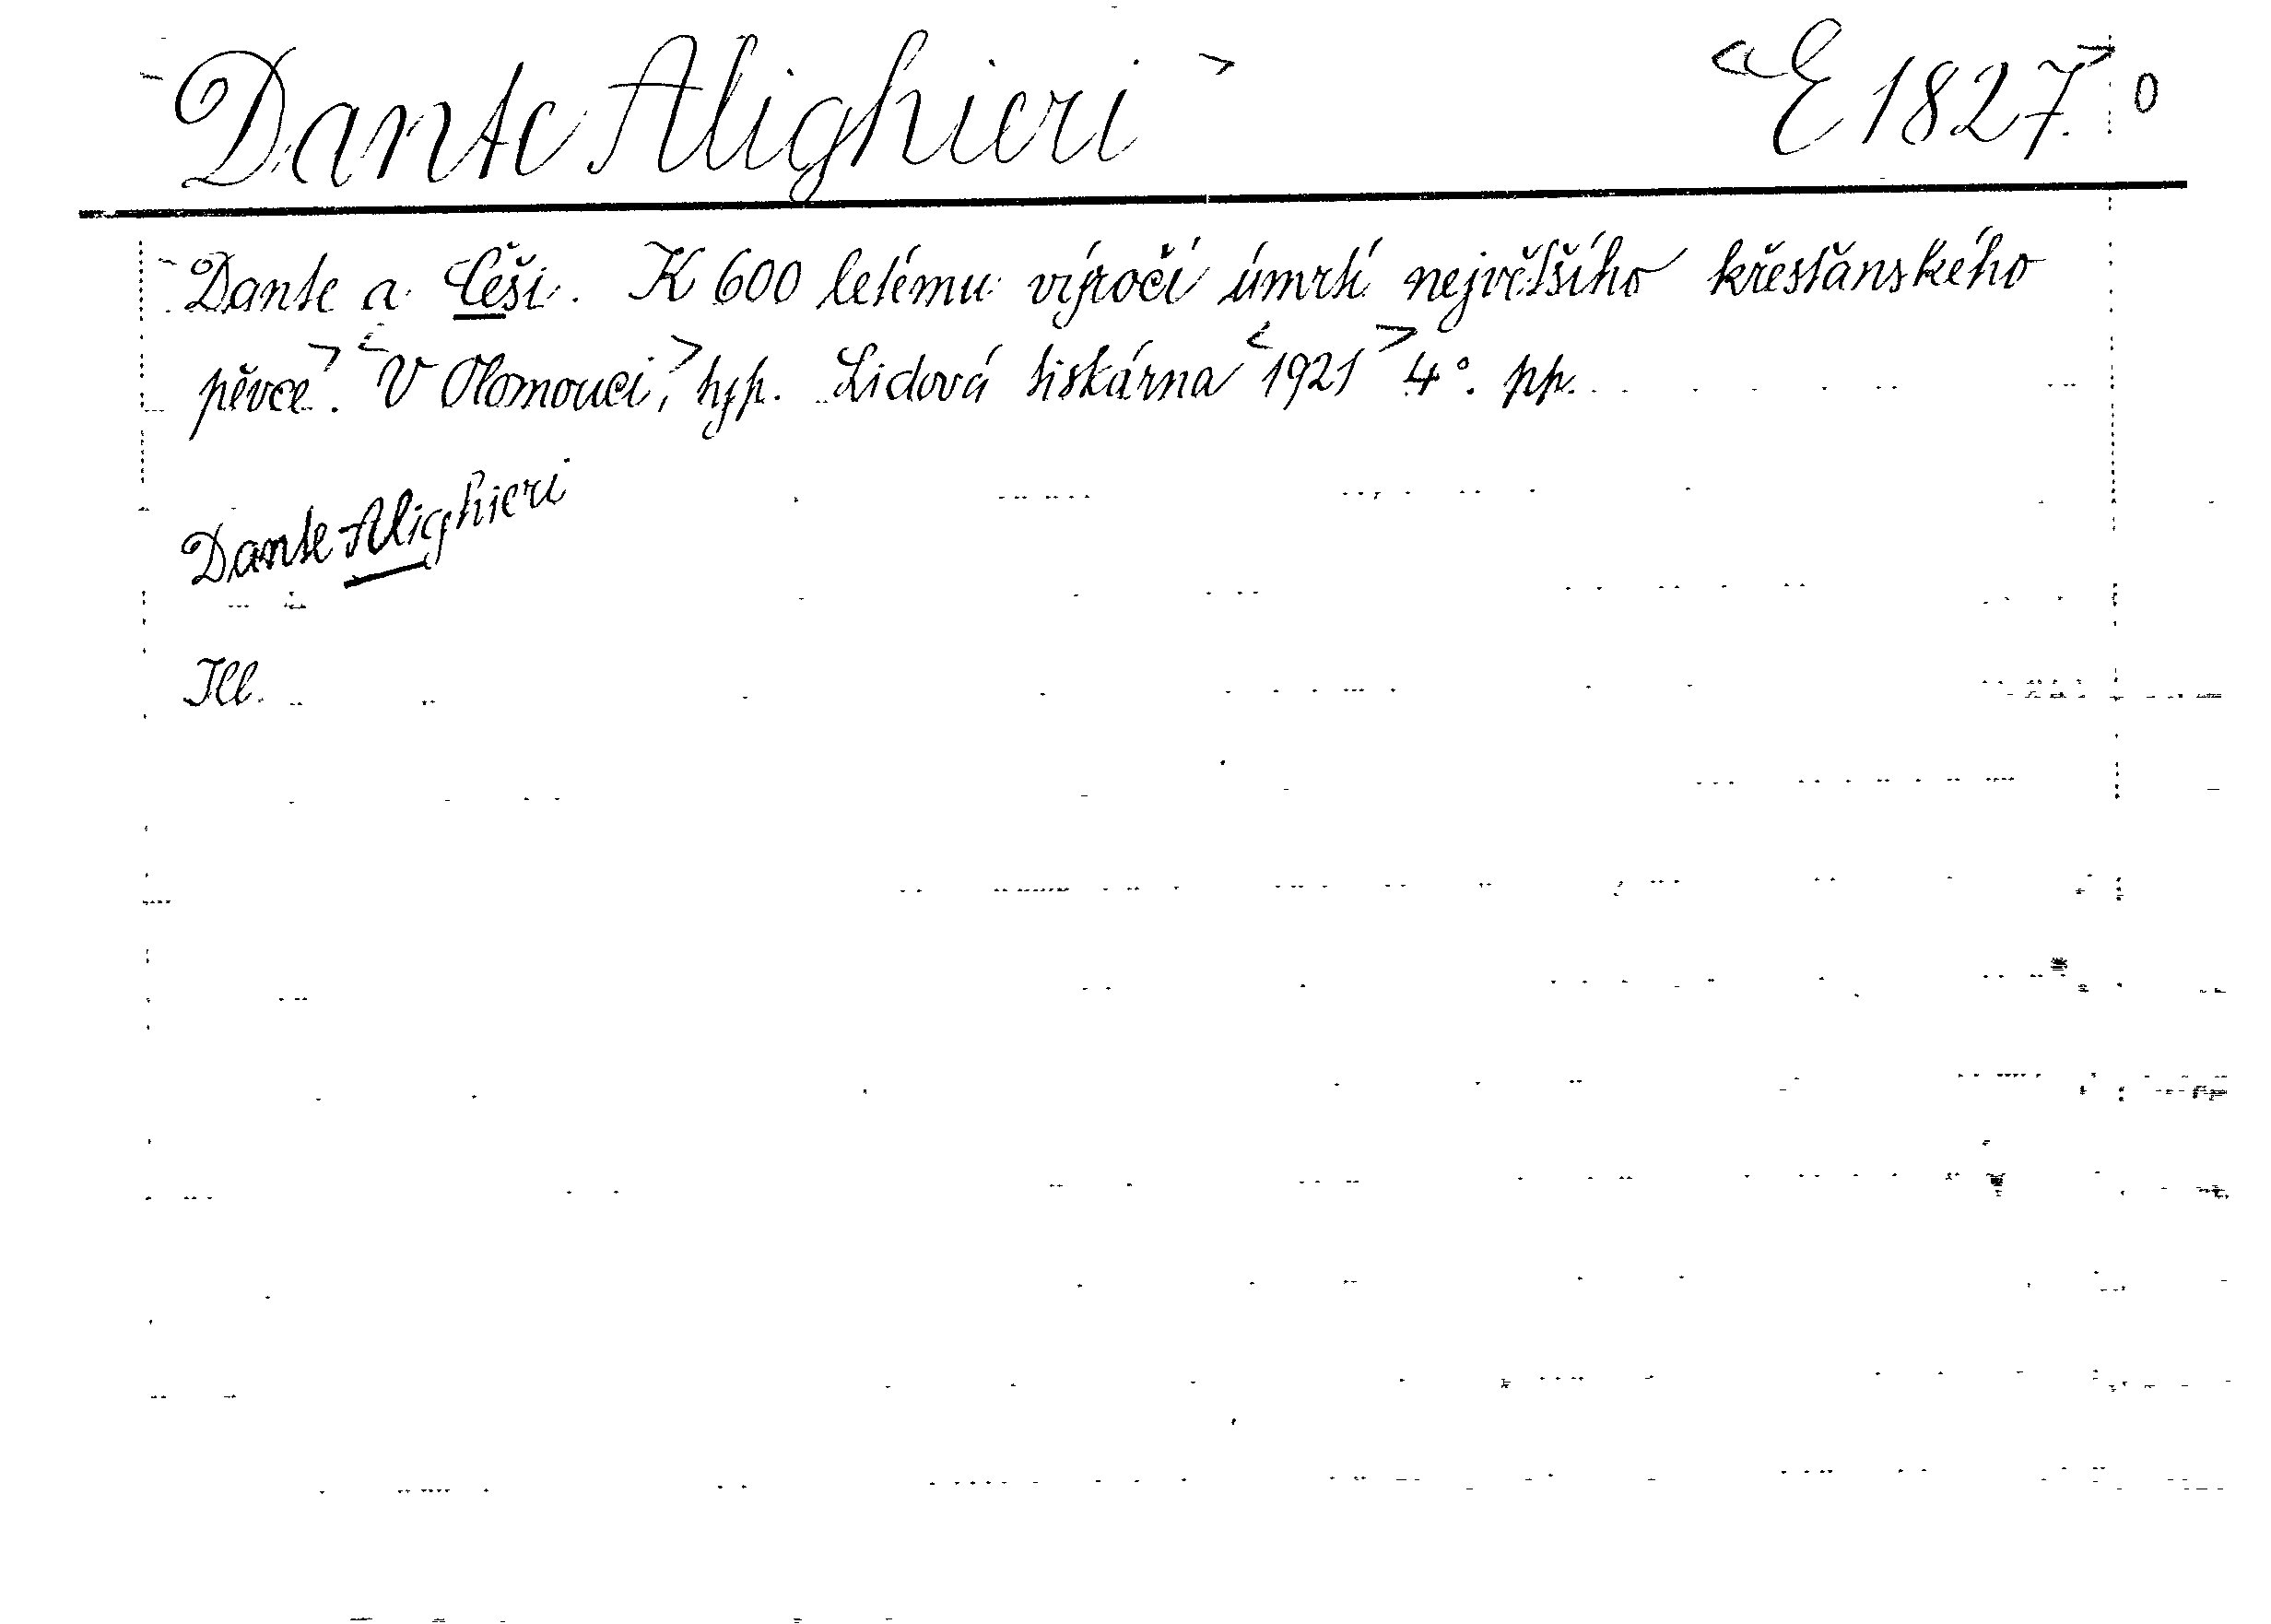 Dante Alighieri > <E 1827.> 0
Dante a Češi. K 600 letému výročí úmrtí největšího křesťanského
pěvce>. <V Olomouci,> typ. Lidová tiskárna <1921> 4°. pp.
Dante Alighieri
Ill.